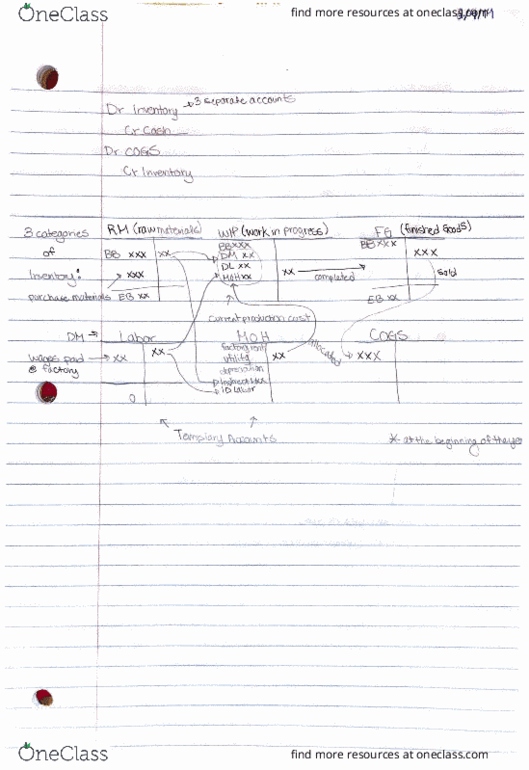 OneClass
find more resources at oneclass.com
Dr Inventory → 3 separate accounts
Cr Cash
Dr COGS
Cr Inventory
3 categories of Inventory:
RM (raw materials)
BB XXX XX
XXX
purchase materials
EB XX
WIP (work in progress)
BB XXX
DM XX
DL XX
MOH XX
XX
completed
current production cost
FG (finished Goods)
BB XXX
XXX
sold
EB XX
DM →
Labor
wages paid @ factory
XX
XX
0
MOH
factory rent
utility
depreciation
indirect
ID Labor
XX
allocated
COGS
XXX
Temporary Accounts
* at the beginning of the
OneClass
find more resources at oneclass.com